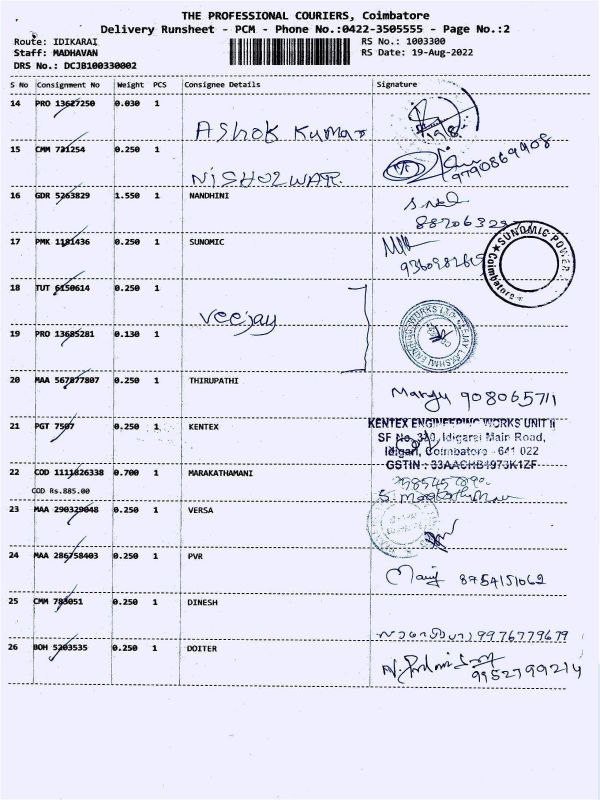 THE PROFESSIONAL COURIERS, Coimbatore
Delivery Runsheet - PCM - Phone No.:0422-3505555 - Page No.:2
Route: IDIKARAI RS No.: 1003300
Staff: MADHAVAN RS Date: 19-Aug-2022
DRS No.: DCJB100330002
S No Consignment No Weight PCS Consignee Details Signature
14 PRO 13627250 0.030 1 Ashok Kumar
15 CMM 731254 0.250 1 9790869908
NISHOLWAR
16 GDR 5263829 1.550 1 NANDHINI
17 PMK 1181436 0.250 1 SUNOMIC
SUNOMIC POWER Coimbatore
18 TUT 6150614 0.250 1
Veejay
19 PRO 13685281 0.130 1
20 MAA 567877807 0.250 1 THIRUPATHI 908065711
21 PGT 7507 0.250 1 KENTEX KENTEX ENGINEERING WORKS UNIT II
SF No. 330, Idigarai Main Road,
Idigari, Coimbatore - 641 022
22 COD 1111826338 0.700 1 MARAKATHAMANI
COD Rs.885.00
23 MAA 290329048 0.250 1 VERSA
24 MAA 286758403 0.250 1 PVR
8754151062
25 CMM 783051 0.250 1 DINESH
9976779679
26 BOH 5203535 0.250 1 DOITER
9952799214